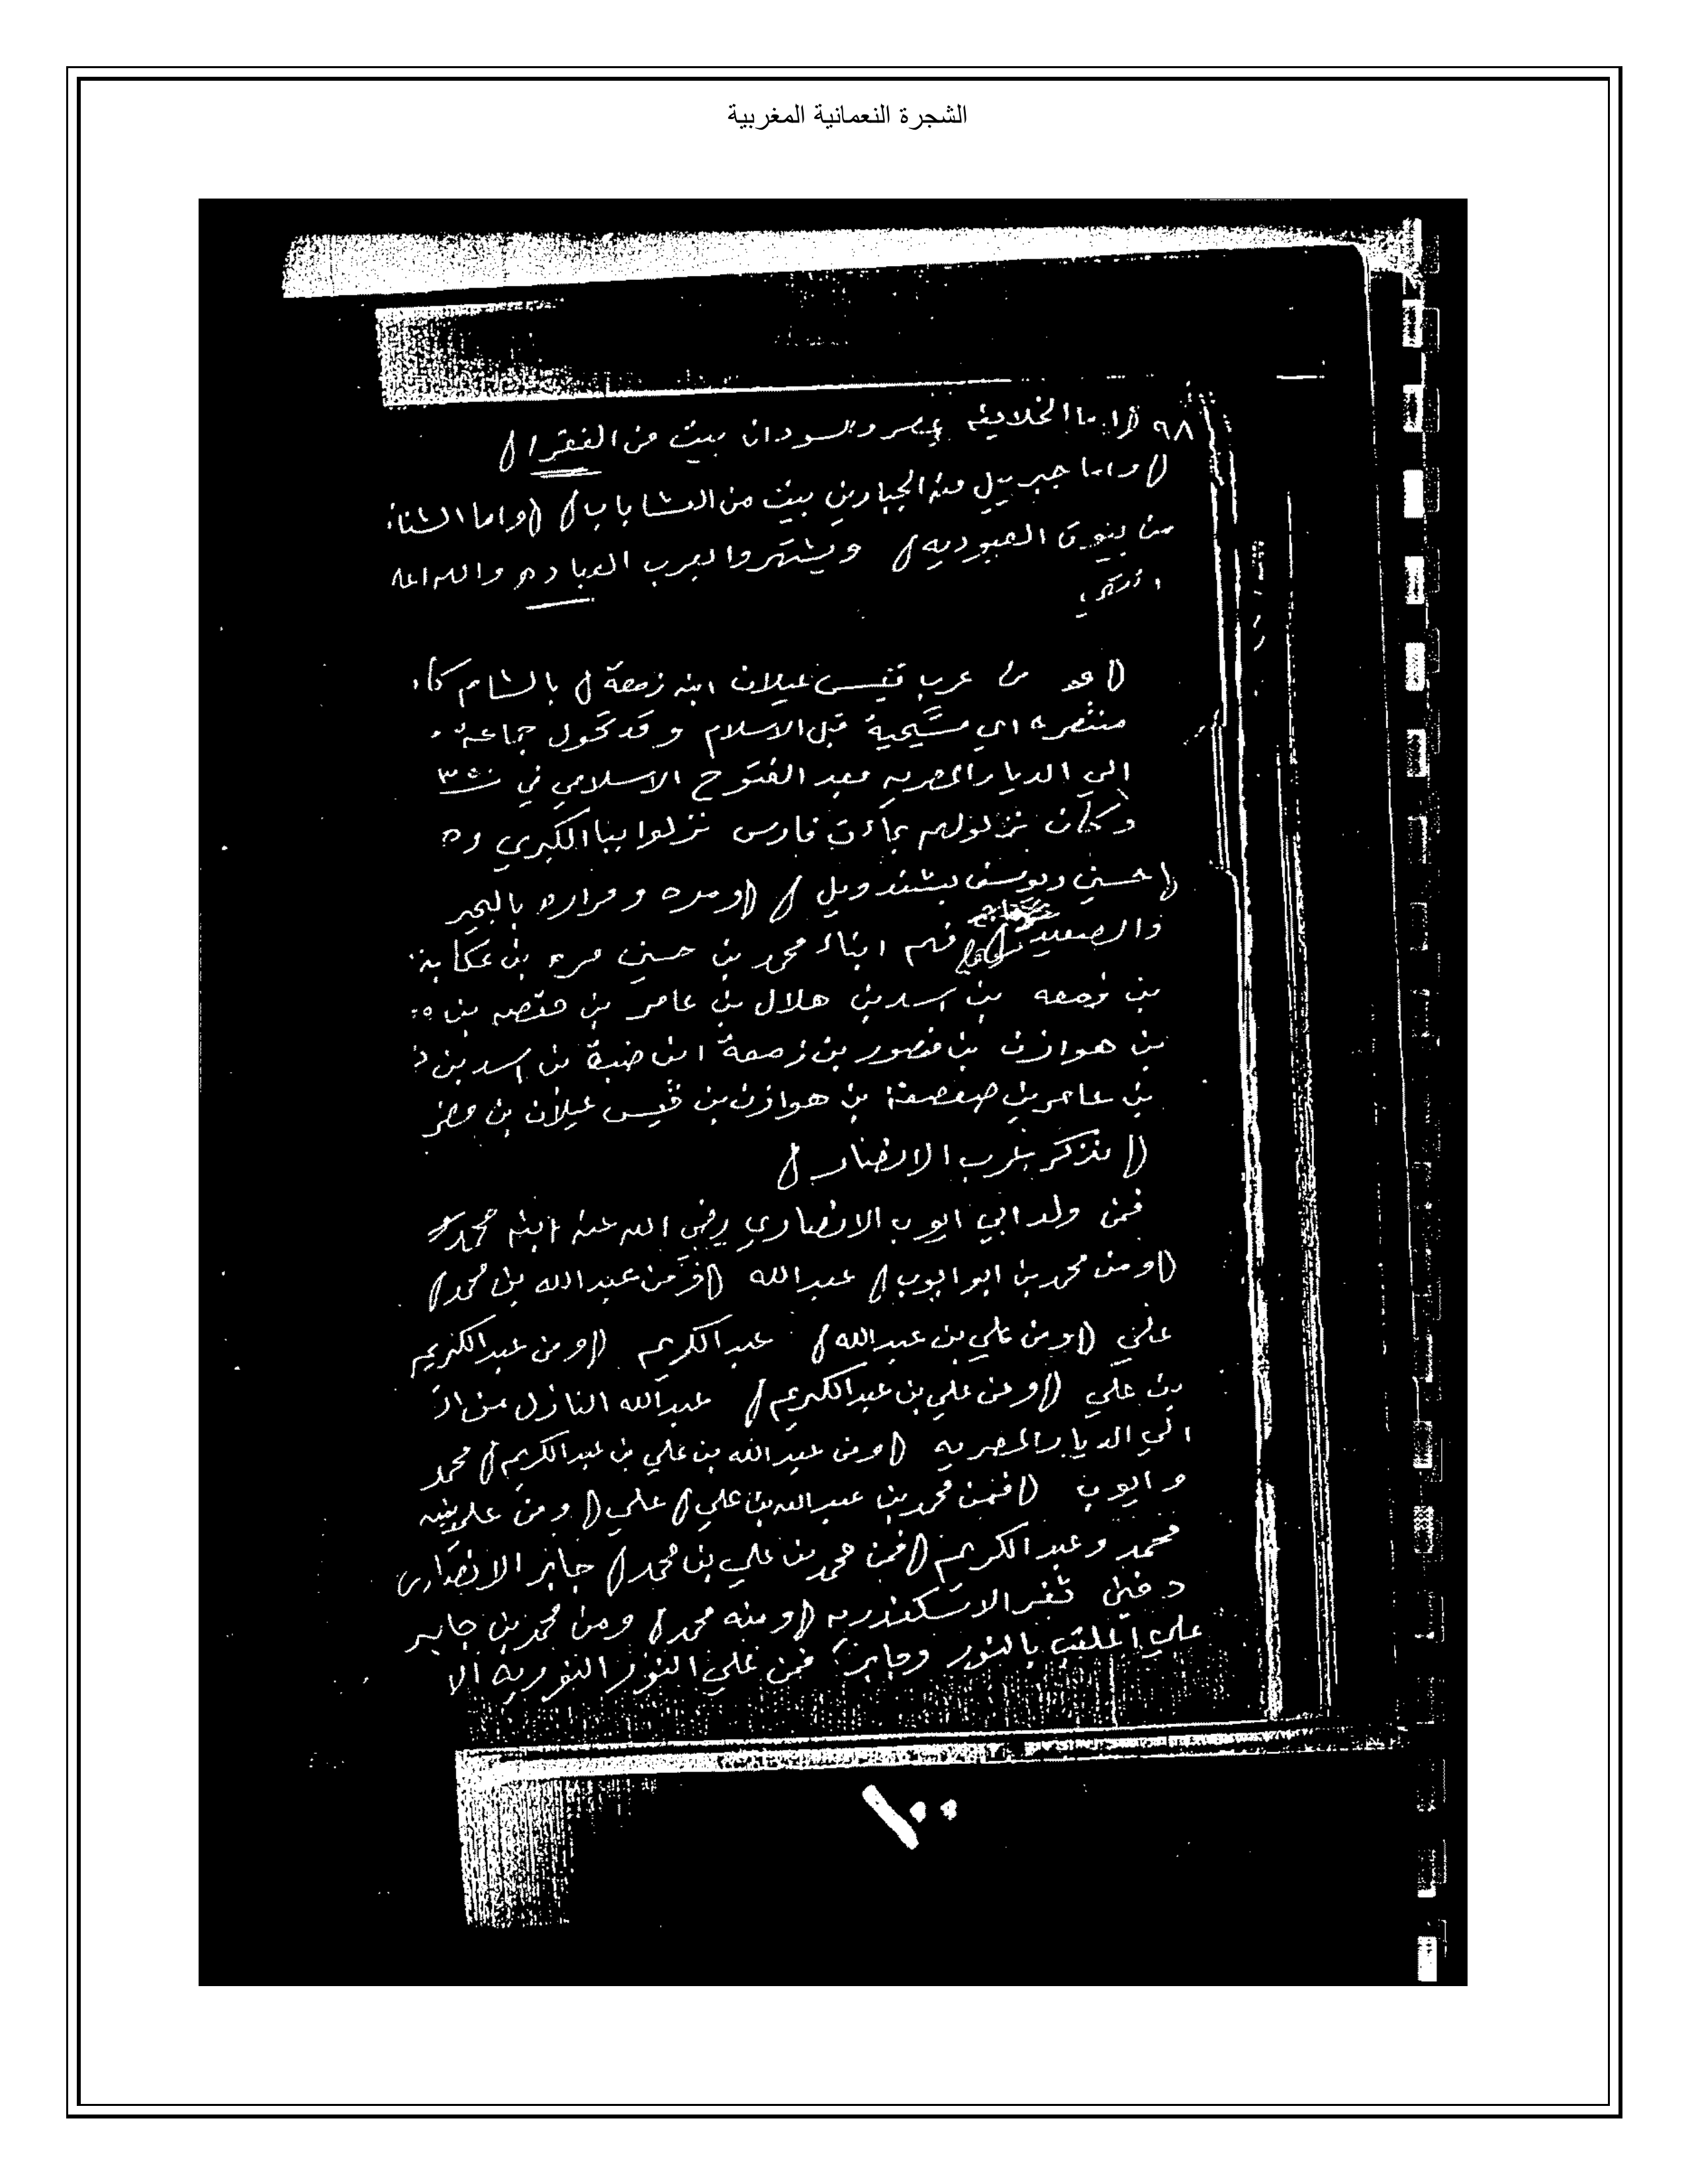 الشجرة النعمانية المغربية
٩٨ (واما الخلايفه بمصر والسودان بيت من الفقرا)
(واما جبرييل منه الجبارين بيت من العشاباب) (واما الشنا
من بيوت العبوديه) ويشتهروا بعرب العباده والله اعلم
من عرب قيس عيلان ابنه زمعة) بالشام كا
منتصره اي مسيحية قبل الاسلام وقد تحول جماعة
الي الديار المصريه بعد الفتوح الاسلامي في
وكان نزولهم نزلوا ببا الكبري
(حسين ويوسف بشندويل) (ومره ومراره بالبحير
والصعيد فهم ابناء محمد بن حسين مره بن عكابة
بن زمعه بن اسد بن هلال بن عامر بن بن
بن هوازن بن منصور بن زمعة ابن ضبة بن اسد بن
بن عامر بن صعصعة بن هوازن بن قيس عيلان بن مضر
(نذكر عرب الانصار)
فمن ولد ابي ايوب الانصاري رضي الله عنه ابنه محمد
(ومن محمد بن ابو ايوب) عبدالله (فمن عبدالله بن محمد)
علي (ومن علي بن عبدالله) عبدالكريم (ومن عبدالكريم
بن علي (ومن علي بن عبدالكريم) عبدالله النازل من
الي الديار المصريه (ومن عبدالله بن علي بن عبدالكريم) محمد
وايوب (فمن محمد بن عبدالله بن علي) علي (ومن علي بنيه
محمد وعبدالكريم (فمن محمد بن علي بن محمد) جابر الانصاري
دفين ثغر الاسكندريه (ومنه محمد) ومن محمد بن جابر
علي الملقب بالنور وجابر فمن علي النور النوريه الا
١٠٠